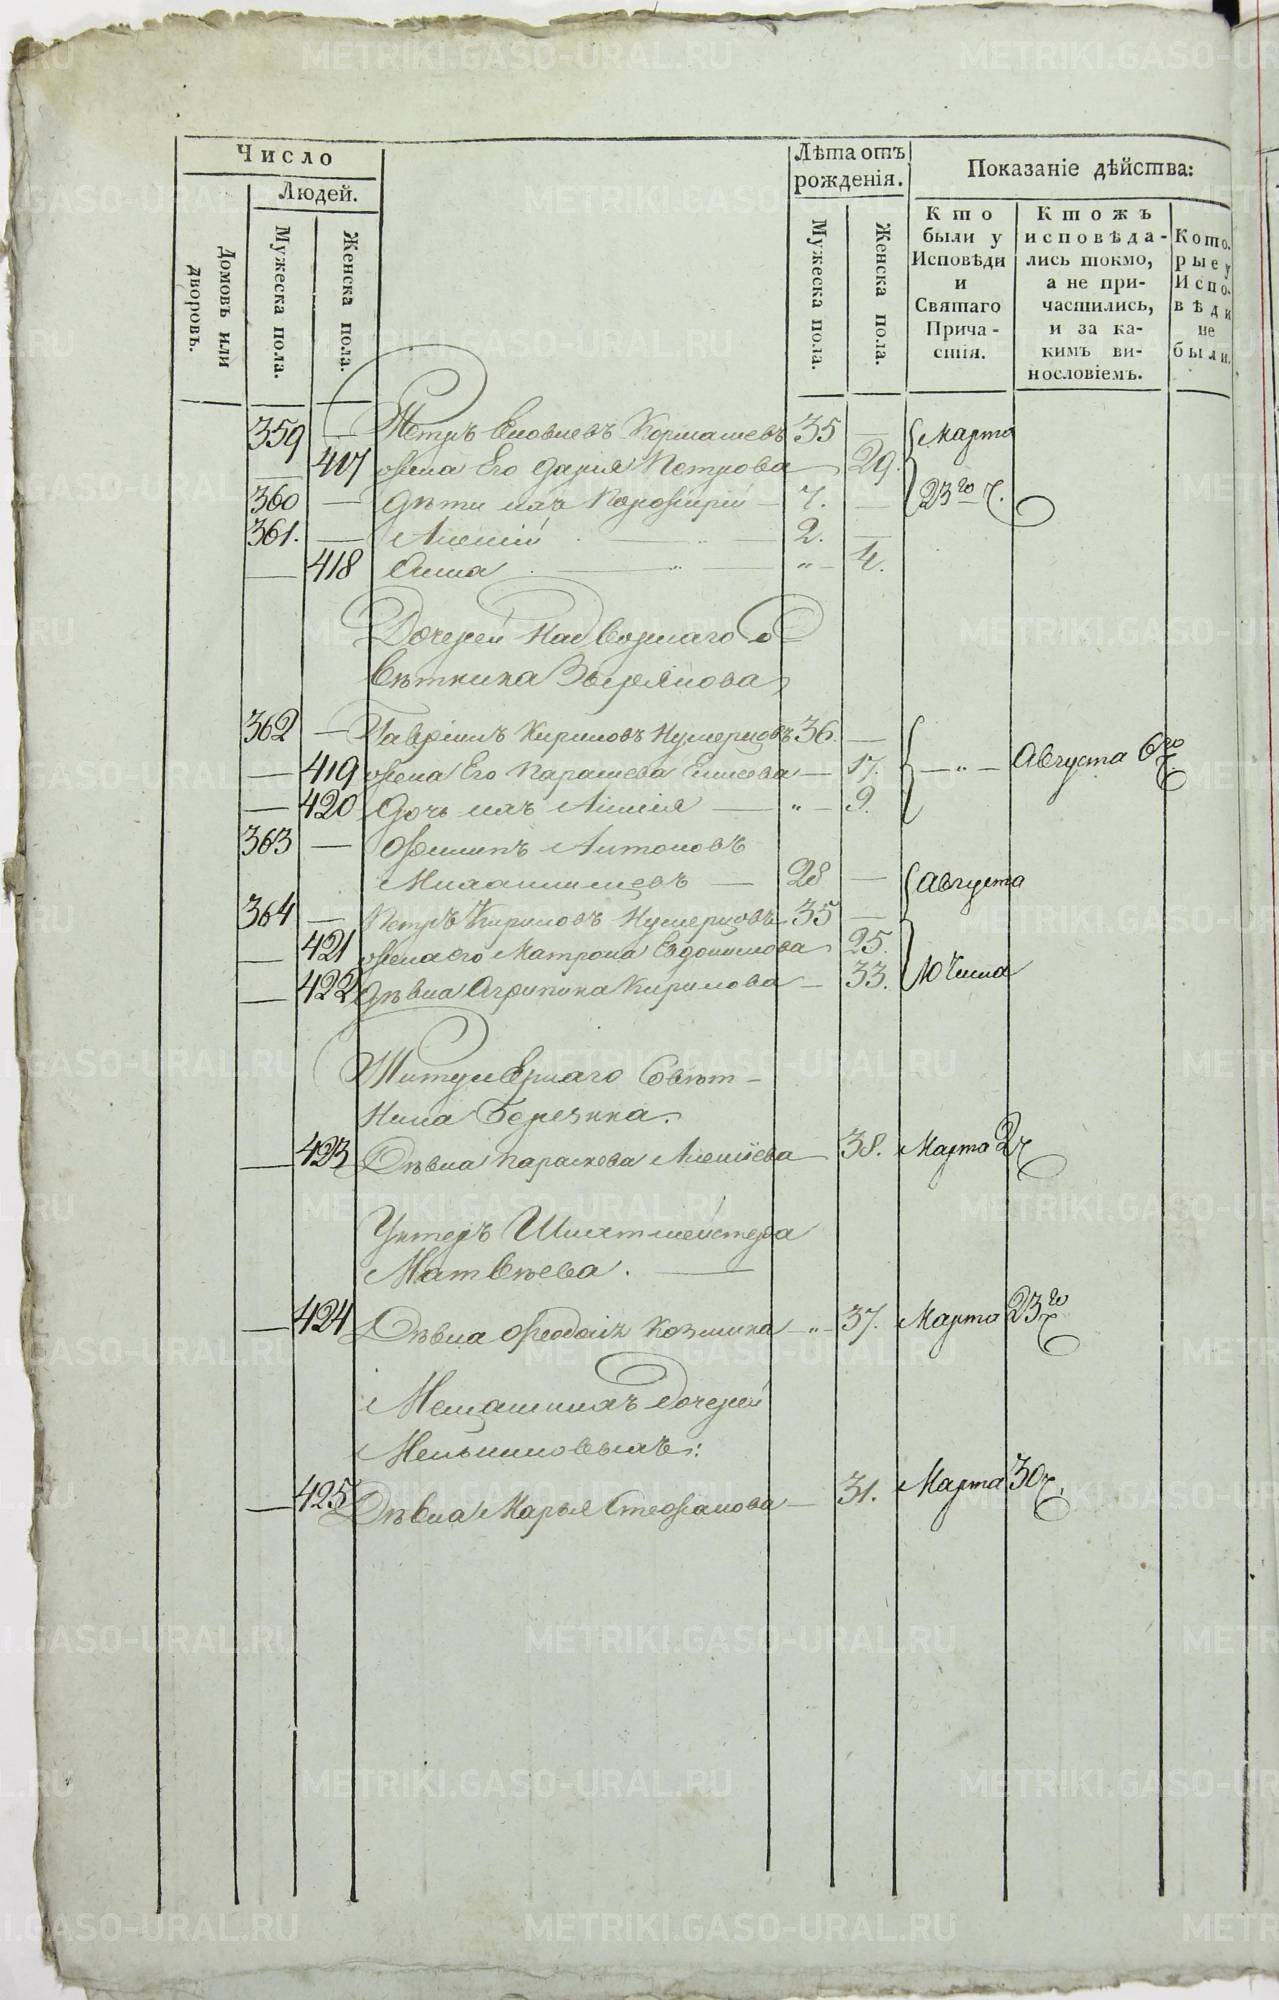 Число
Людей.
Домовъ или дворовъ.
Мужеска пола.
Женска пола.
Лѣта отъ рожденія.
Мужеска пола.
Женска пола.
Показаніе дѣйства:
Кто были у Исповѣди и Святаго Причастія.
Ктожъ исповѣдались токмо, а не причастились, и за какимъ винословіемъ.
Которые у Исповѣди не были.
359 — Петръ 35 — Марта
— 417 жена Его Дарья Петрова — 29. 23го ч.
360 — дѣти ихъ Порфирій — 7. —
361. — Алексій — „ — 2. —
— 418 Анна — „ — „ — 4.
Дочерей Надворнаго Со
вѣтника Зырянова
362 — Гавріилъ Кириловъ 36. —
— 419 жена Его — 17. — „ — Августа 6го ч
— 420 Дочь ихъ — „ — 9.
363 — Филипъ Антоновъ
— 28 — Августа
364 — Петръ Кириловъ 35 —
— 421 жена его Матрона Евдокимова 25.
— 422 Дѣвка Агрипина Кирилова — 33. 10 Числа
Титулярнаго Совѣт-
ника Березина.
— 423 Дѣвка Параскева Алексіева — 38. Марта 2 ч
Унтеръ Шихтмейстера
Матвѣева. —
— 424 Дѣвка Козмина — „ — 37. Марта 23го ч
Мещанскихъ дочерей
Меньшиковыхъ:
— 425 Дѣвка Марья Стефанова — 31. Марта 30 ч.
METRIKI.GASO-URAL.RU